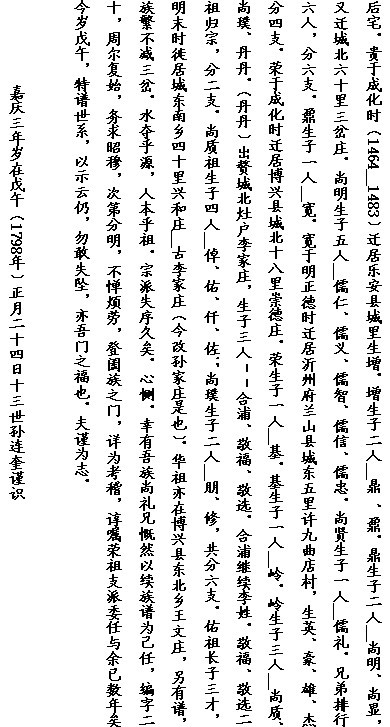 后宅。贵于成化时（1464__1483）迁居乐安县城里生增。增生子二人__鼎、鼐。鼎生子二人__尚明、尚显
又迁城北六十里三岔庄。尚明生子五人__儒仁、儒义、儒智、儒信、儒忠。尚贤生子一人__儒礼。兄弟排行
六人，分六支。鼐生子一人__宽。宽于明正德时迁居沂州府兰山县城东五里许九曲店村，生英、豪、雄、杰
分四支。荣于成化时迁居博兴县城北十八里崇德庄。荣生子一人__基。基生子一人__岭。岭生子三人__尚质、
尚璞、丹丹。（丹丹）出赘城北灶户李家庄，生子三人--合浦、敬福、敬选。合浦继续李姓。敬福、敬选二
祖归宗，分二支。尚质祖生子四人__倬、佑、仟、佐；尚璞生子二人__朋、修，共分六支。佑祖长子三才，
明末时徙居城东南乡四十里兴和庄__古李家庄（今改孙家庄是也）。华祖亦在博兴县东北乡王文庄，另有谱，
族繁不减三岔。水夲乎源，人本乎祖。宗派失序久矣。心恻。幸有吾族尚礼兄慨然以续族谱为己任，编字二
十，周尔复始，务求昭穆，次第分明，不惮烦劳，登阖族之门，详为考稽，谆嘱荣祖支派委任与余已数年矣
今岁戊午，特谱世系，以示云仍，勿敢失坠，亦吾门之福也。夫谨为志。
嘉庆三年岁在戊午（1798年）正月二十四日十三世孙连奎谨识